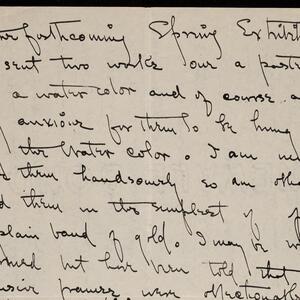 forthcoming Spring Exhibit
sent two works one a past
a water color and of course a
anxious for them to be hung
the Water color. I am
them handsomely so am
them in the simplest of
plain band of gold. I may be
but have been told that
frames were